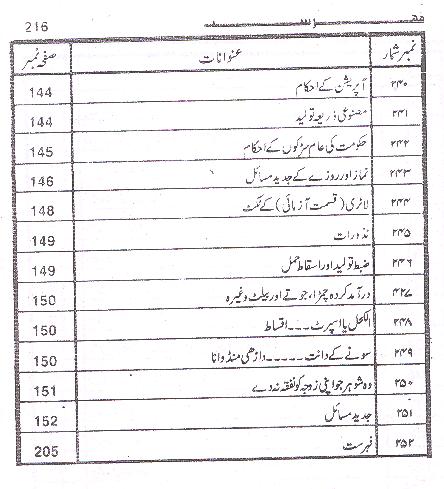 فہرست 216
نمبر شمار عنوانات صفحہ نمبر
۲۴۰ آپریشن کے احکام 144
۲۴۱ مصنوعی ذریعہ تولید 144
۲۴۲ حکومت کی عام سڑکوں کے احکام 145
۲۴۳ نماز اور روزے کے جدید مسائل 146
۲۴۴ لاٹری (قسمت آزمائی) کے ٹکٹ 148
۲۴۵ نذورات 149
۲۴۶ ضبط تولید اور اسقاط حمل 149
۴۲۷ درآمد کردہ چمڑا، جوتے اور بیلٹ وغیرہ 150
۲۴۸ الکحل یا اسپرٹ ۔۔۔ اقساط 150
۲۴۹ سونے کے دانت ۔۔۔۔۔ داڑھی منڈوانا 150
۲۵۰ وہ شوہر جو اپنی زوجہ کو نفقہ نہ دے 151
۲۵۱ جدید مسائل 152
۲۵۲ فہرست 205